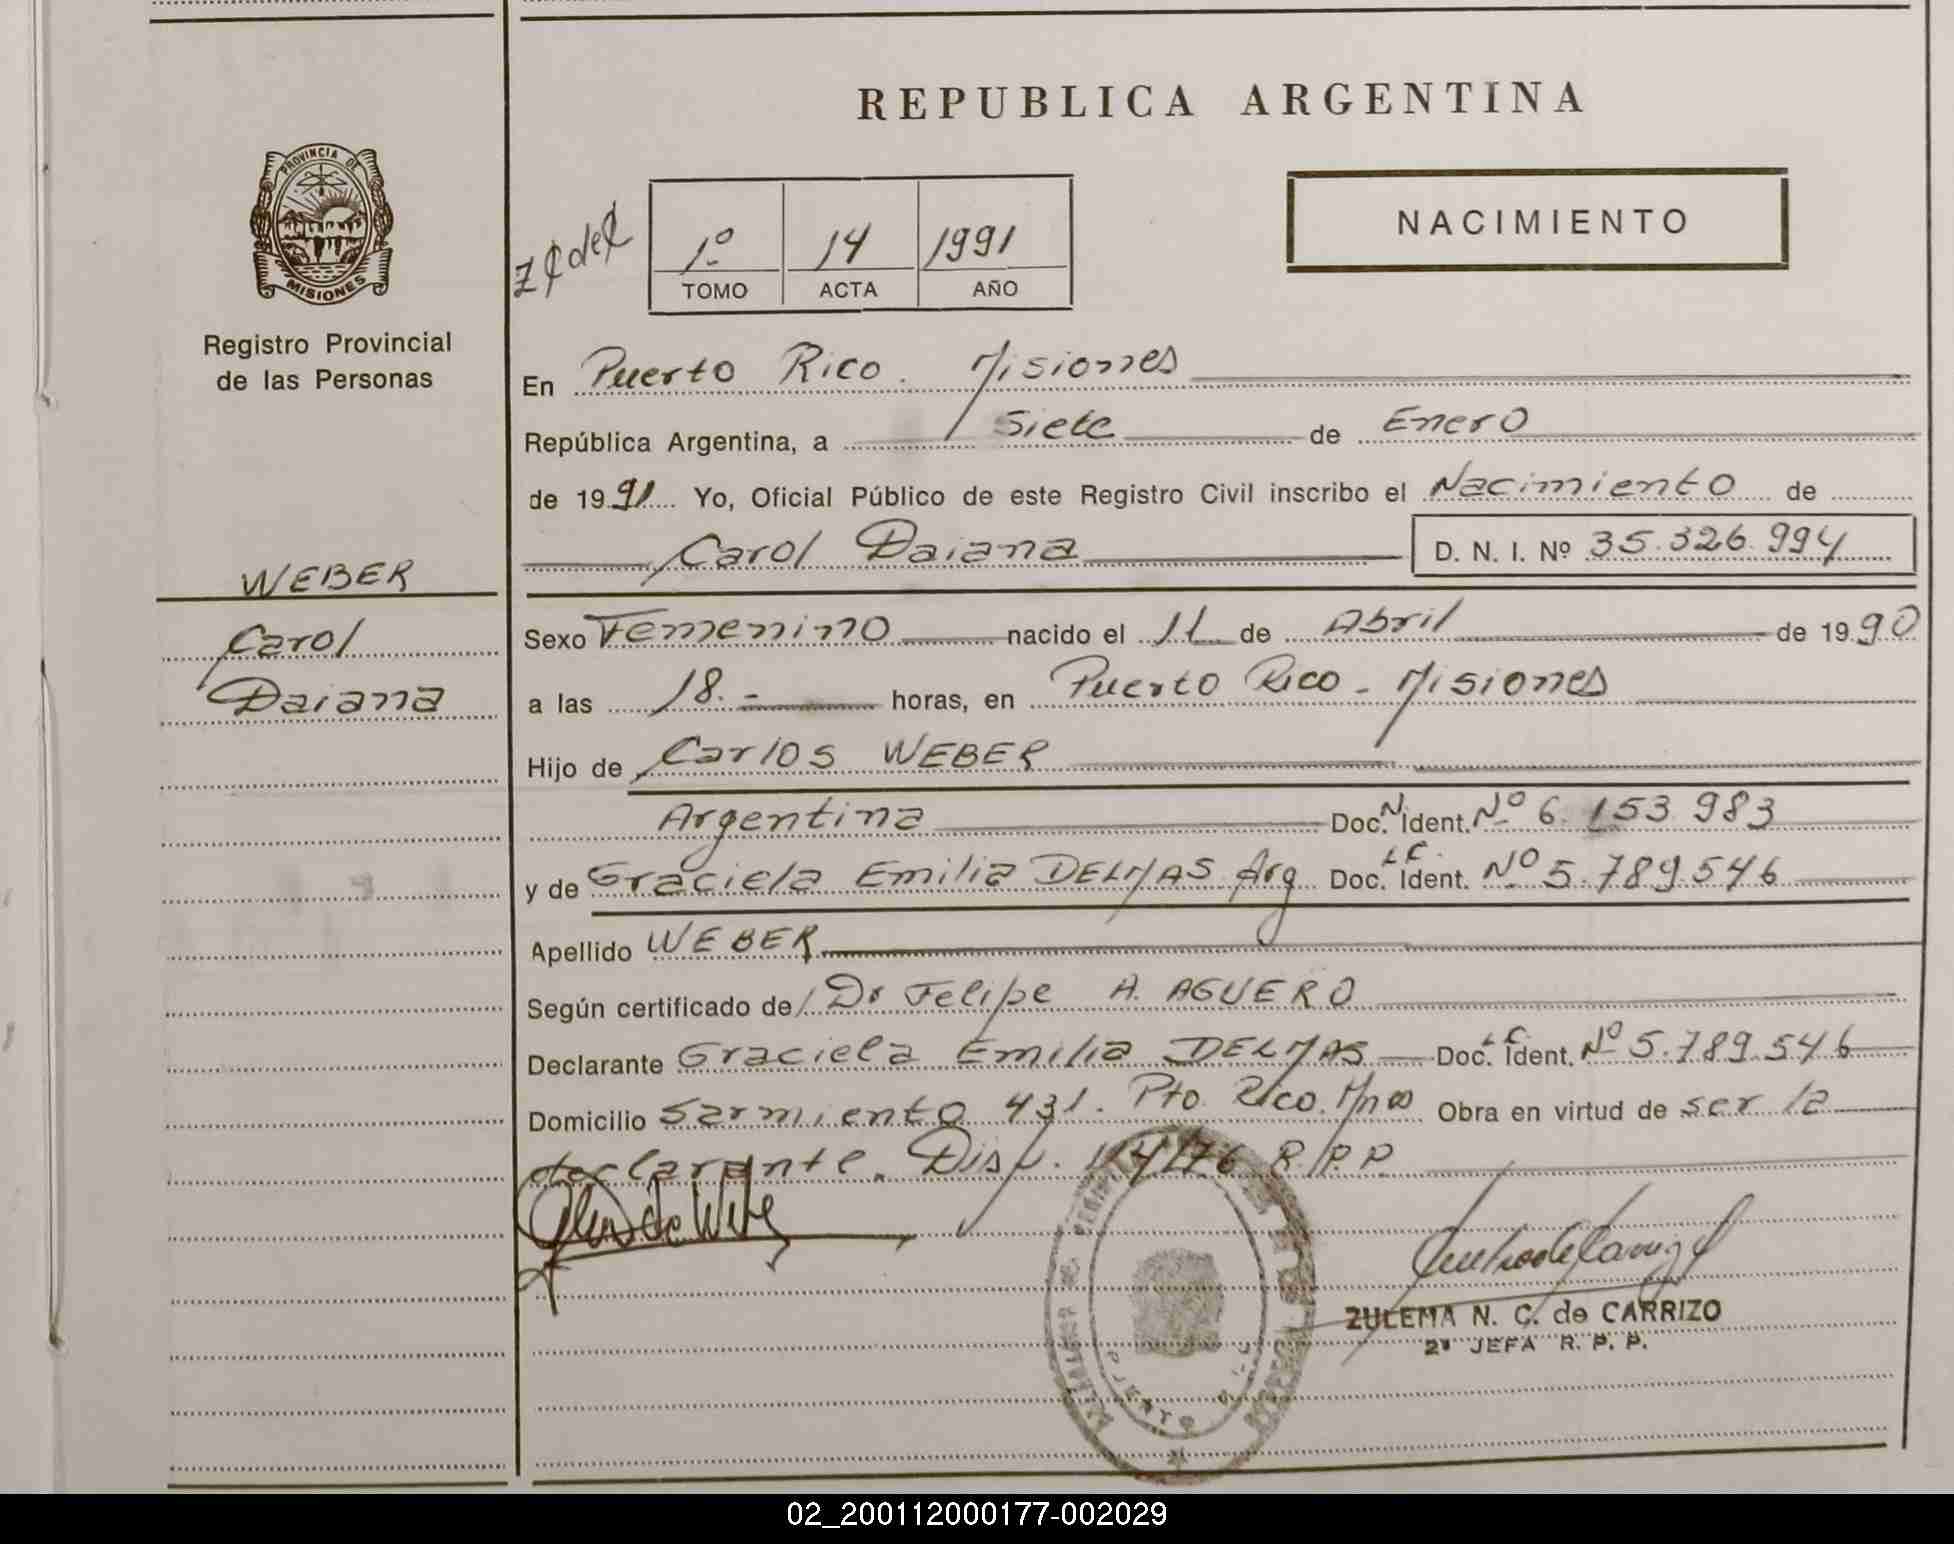 REPUBLICA ARGENTINA
PROVINCIA DE
MISIONES
Registro Provincial
de las Personas
1º 14 1991
TOMO ACTA AÑO
NACIMIENTO
En Puerto Rico. Misiones
República Argentina, a Siete de Enero
de 1991 Yo, Oficial Público de este Registro Civil inscribo el Nacimiento de
Carol Daiana D. N. I. Nº 35.326.994
WEBER
Carol
Daiana
Sexo Femenino nacido el 11 de Abril de 1990
a las 18.- horas, en Puerto Rico - Misiones
Hijo de Carlos WEBER
Argentina Doc. N Ident. Nº 6.153.983
y de Graciela Emilia DELMAS Arg Doc. LC. Ident. Nº 5.789.546
Apellido WEBER
Según certificado de Dr Felipe A. AGUERO
Declarante Graciela Emilia DELMAS Doc. LC Ident. Nº 5.789.546
Domicilio Sarmiento 431. Pto Rico. Mnes Obra en virtud de ser la
declarante. Disp. 114/76 R.P.P.
ZULEMA N. C. de CARRIZO
2ª JEFA R. P. P.
02_200112000177-002029